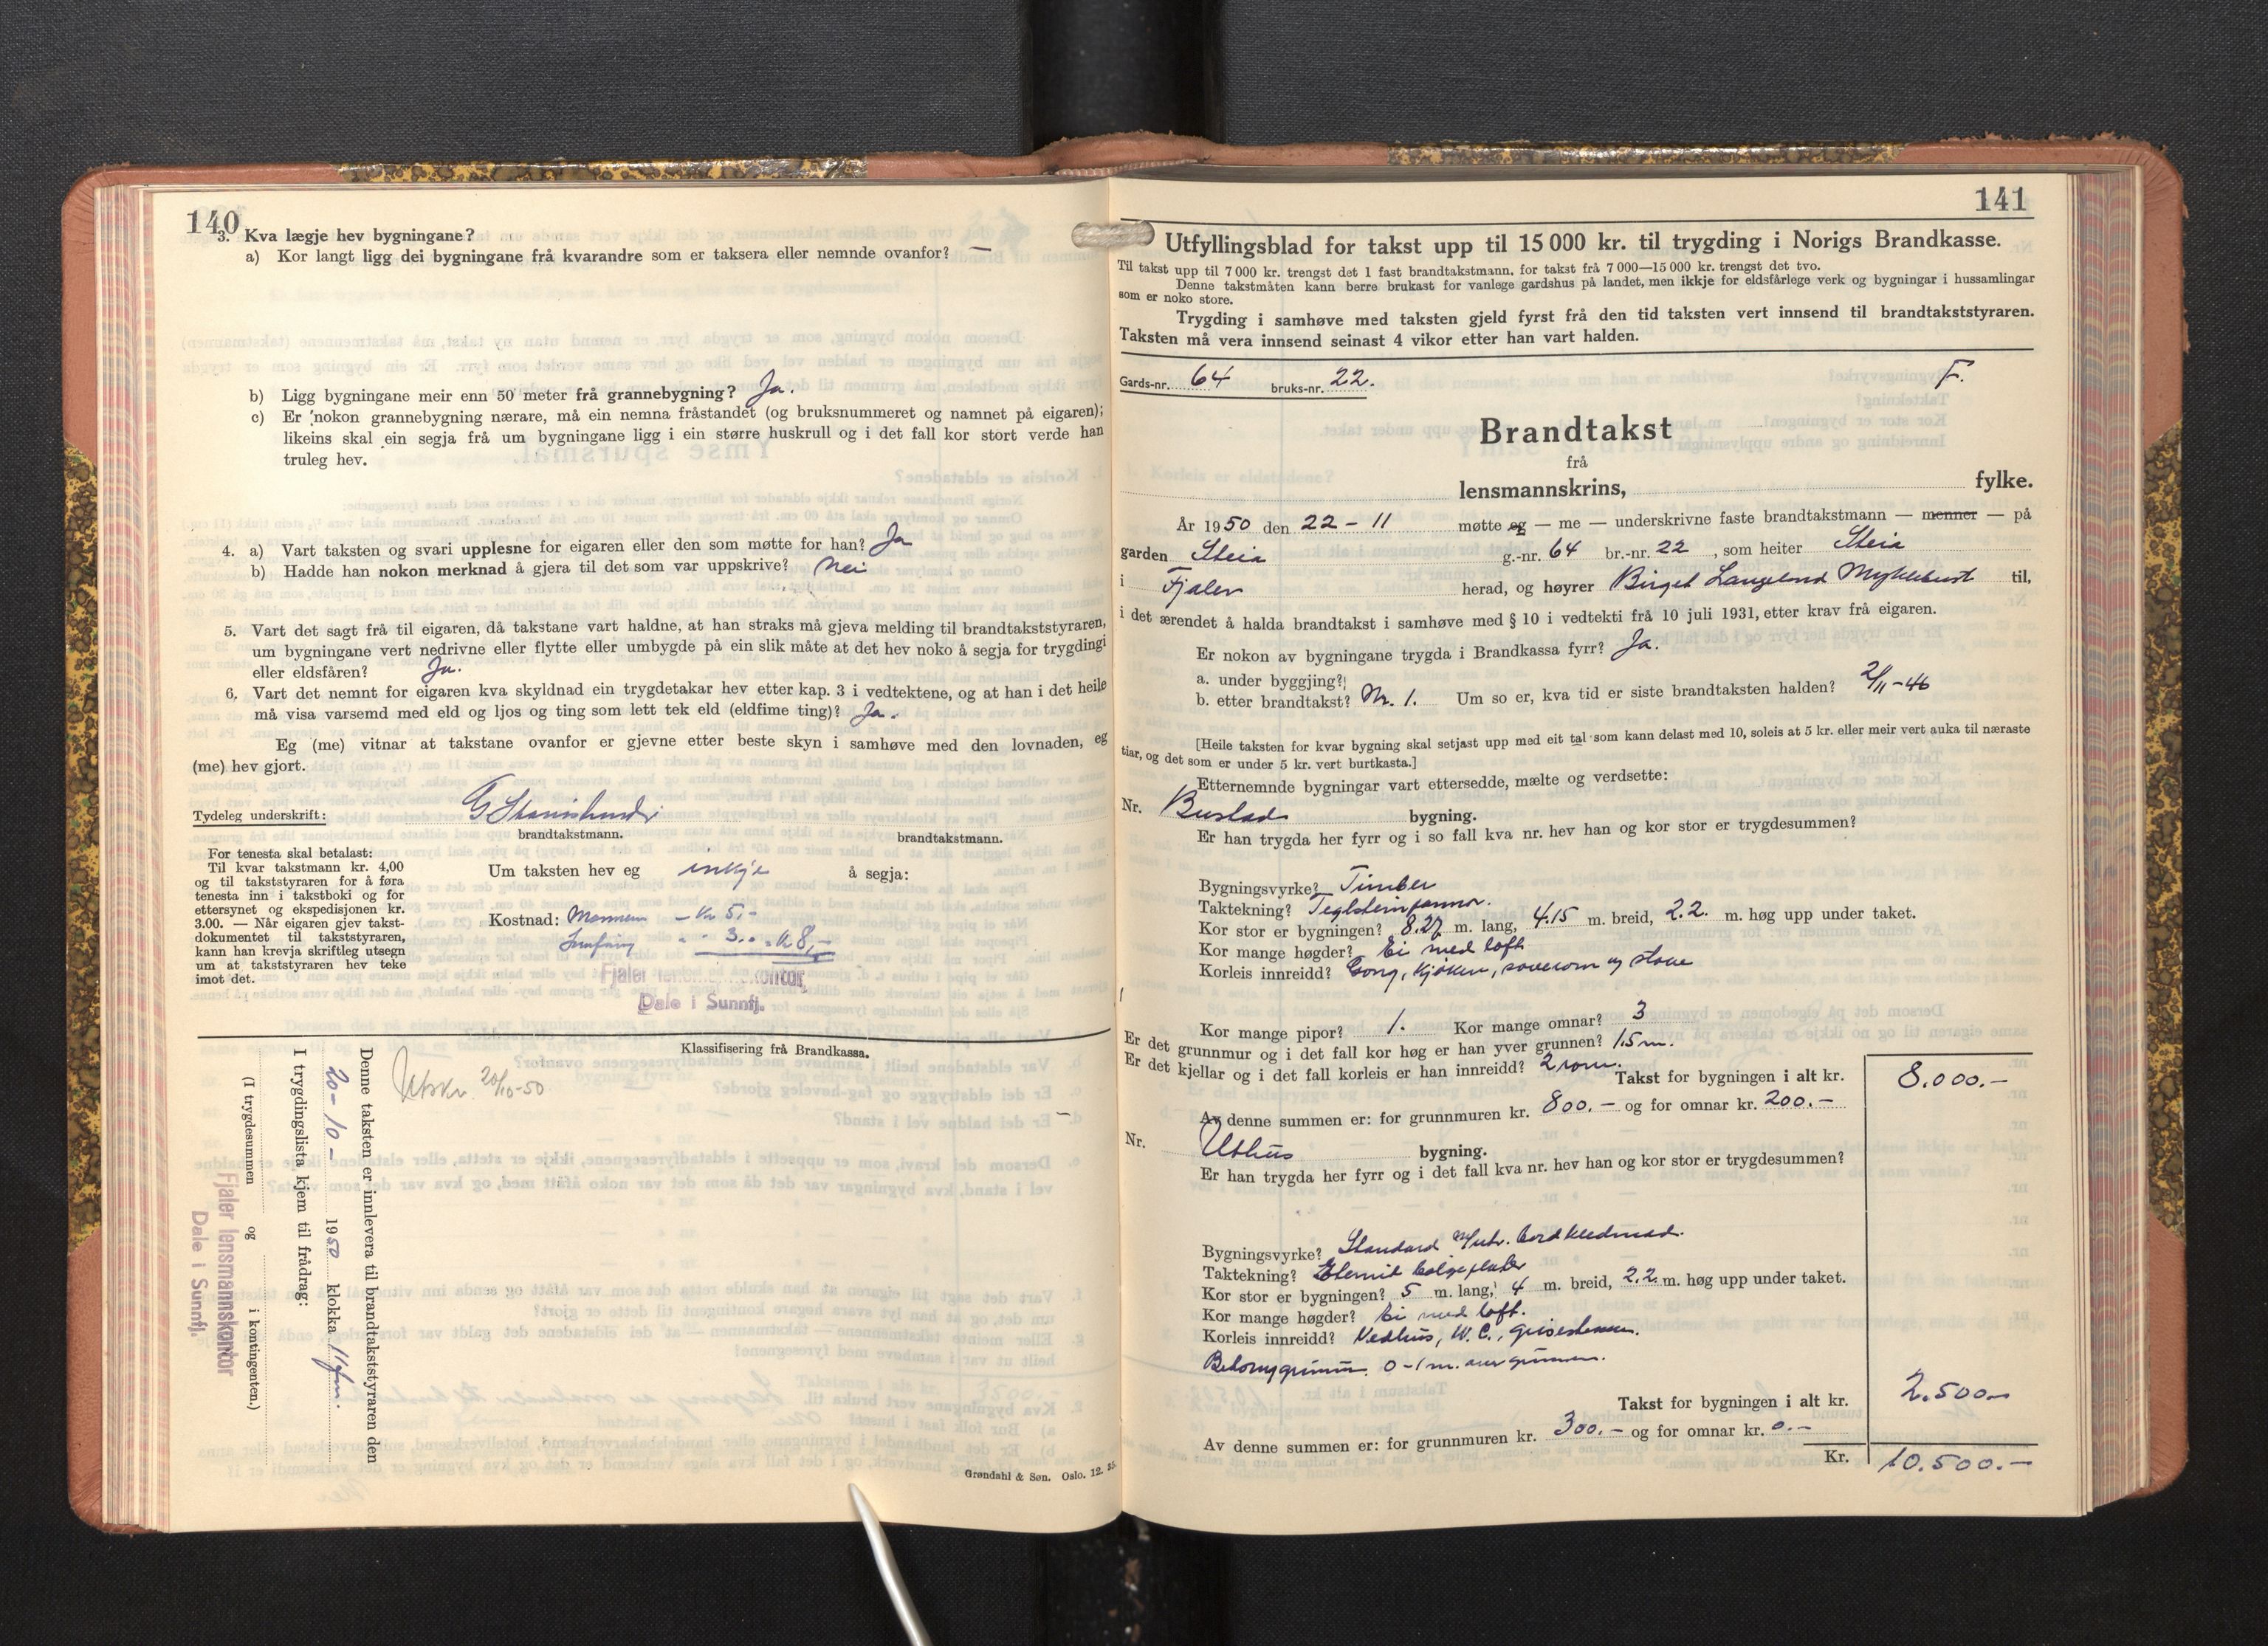 140
3. Kva lægje hev bygningane?
a) Kor langt ligg dei bygningane frå kvarandre som er taksera eller nemnde ovanfor? —
b) Ligg bygningane meir enn 50 meter frå grannebygning? Ja.
c) Er nokon grannebygning nærare, må ein nemna fråstandet (og bruksnummeret og namnet på eigaren);
likeins skal ein segja frå um bygningane ligg i ein større huskrull og i det fall kor stort verde han
truleg hev.
4. a) Vart taksten og svari upplesne for eigaren eller den som møtte for han? Ja
b) Hadde han nokon merknad å gjera til det som var uppskrive? Nei
5. Vart det sagt frå til eigaren, då takstane vart haldne, at han straks må gjeva melding til brandtakststyraren,
um bygningane vert nedrivne eller flytte eller umbygde på ein slik måte at det hev noko å segja for trygdingi
eller eldsfåren? Ja.
6. Vart det nemnt for eigaren kva skyldnad ein trygdetakar hev etter kap. 3 i vedtektene, og at han i det heile
må visa varsemd med eld og ljos og ting som lett tek eld (eldfime ting)? Ja.
Eg (me) vitnar at takstane ovanfor er gjevne etter beste skyn i samhøve med den lovnaden, eg
(me) hev gjort.
Tydeleg underskrift:
brandtakstmann. brandtakstmann.
For tenesta skal betalast:
Til kvar takstmann kr. 4,00
og til takststyraren for å føra
tenesta inn i takstboki og for
ettersynet og ekspedisjonen kr.
3.00. — Når eigaren gjev takst-
dokumentet til takststyraren,
kann han krevja skriftleg utsegn
um at takststyraren hev teke
imot det.
Um taksten hev eg inkje å segja:
Kostnad: Mannen – Kr 5,-
3.. = kr 8,-
Fjaler lensmannskontor
Dale i Sunnfj.
Klassifisering frå Brandkassa.
Utskr. 20/10-50
Denne taksten er innlevera til brandtakststyraren den
20-10- 1950 klokka 11 fm.
I trygdingslista kjem til frådrag:
(I trygdesummen og i kontingenten.)
Fjaler lensmannskontor
Dale i Sunnfj.
Grøndahl & Søn. Oslo. 12. 35.
141
Utfyllingsblad for takst upp til 15 000 kr. til trygding i Norigs Brandkasse.
Til takst upp til 7 000 kr. trengst det 1 fast brandtakstmann, for takst frå 7 000—15 000 kr. trengst det tvo.
Denne takstmåten kann berre brukast for vanlege gardshus på landet, men ikkje for eldsfårlege verk og bygningar i hussamlingar
som er noko store.
Trygding i samhøve med taksten gjeld fyrst frå den tid taksten vert innsend til brandtakststyraren.
Taksten må vera innsend seinast 4 vikor etter han vart halden.
Gards-nr. 64 bruks-nr. 22. F.
Brandtakst
frå
lensmannskrins, fylke.
År 1950 den 22 - 11 møtte eg — me — underskrivne faste brandtakstmann — menner — på
garden Steia g.-nr. 64 br.-nr. 22, som heiter Steia
i Fjaler herad, og høyrer Birget Langeland Myklebust til,
i det ærendet å halda brandtakst i samhøve med § 10 i vedtekti frå 10 juli 1931, etter krav frå eigaren.
Er nokon av bygningane trygda i Brandkassa fyrr? Ja.
a. under byggjing?
b. etter brandtakst? Nr. 1. Um so er, kva tid er siste brandtaksten halden? 2/11-46
[Heile taksten for kvar bygning skal setjast upp med eit tal som kann delast med 10, soleis at 5 kr. eller meir vert auka til næraste
tiar, og det som er under 5 kr. vert burtkasta.]
Etternemnde bygningar vart ettersedde, mælte og verdsette:
Nr. Bustad bygning.
Er han trygda her fyrr og i so fall kva nr. hev han og kor stor er trygdesummen?
Bygningsvyrke? Timber
Taktekning? Teglsteinpannor.
Kor stor er bygningen? 8.27 m. lang, 4.15 m. breid, 2.2. m. høg upp under taket.
Kor mange høgder? Ei med loft
Korleis innreidd? Gong, kjøken, soverom og stove
Kor mange pipor? 1. Kor mange omnar? 3
Er det grunnmur og i det fall kor høg er han yver grunnen? 1.5 m.
Er det kjellar og i det fall korleis er han innreidd? 2 rom.
Takst for bygningen i alt kr. 8.000.-
Av denne summen er: for grunnmuren kr. 800.- og for omnar kr. 200.-
Nr. Uthus bygning.
Er han trygda her fyrr og i det fall kva nr. hev han og kor stor er trygdesummen?
Bygningsvyrke? Standard m/utv. bordkledning.
Taktekning? Eternit bølgeplater
Kor stor er bygningen? 5 m. lang, 4 m. breid, 2.2. m. høg upp under taket.
Kor mange høgder? Ei med loft.
Korleis innreidd? Vedhus, W.C.,
0-1 m. over grunnen.
Takst for bygningen i alt kr. 2.500.-
Av denne summen er: for grunnmuren kr. 300.- og for omnar kr. 0.-
Kr. 10.500.-